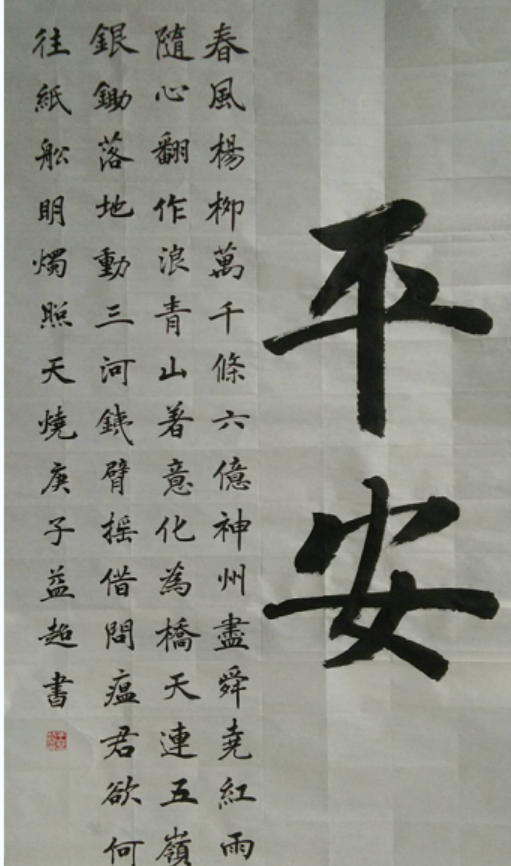 平安
春風楊柳萬千條六億神州盡舜堯紅雨
隨心翻作浪青山著意化為橋天連五嶺
銀鋤落地動三河鐵臂摇借問瘟君欲何
往紙船明燭照天燒庚子益超書